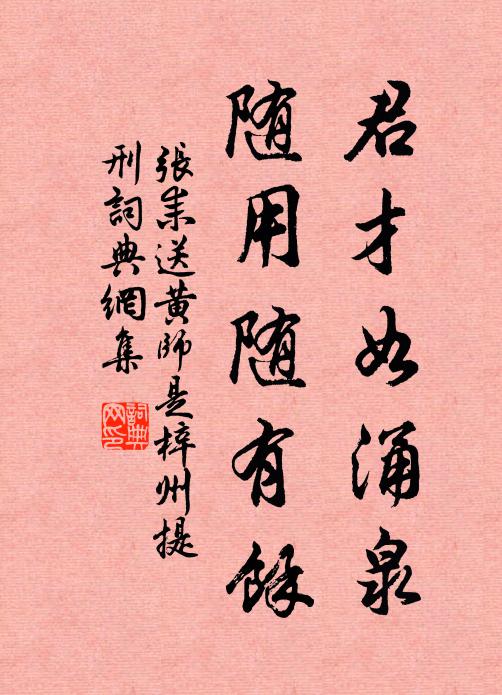 君才如涌泉
随用随有餘
張耒送黄師是梓州提
刑詞典網集
詞典网印